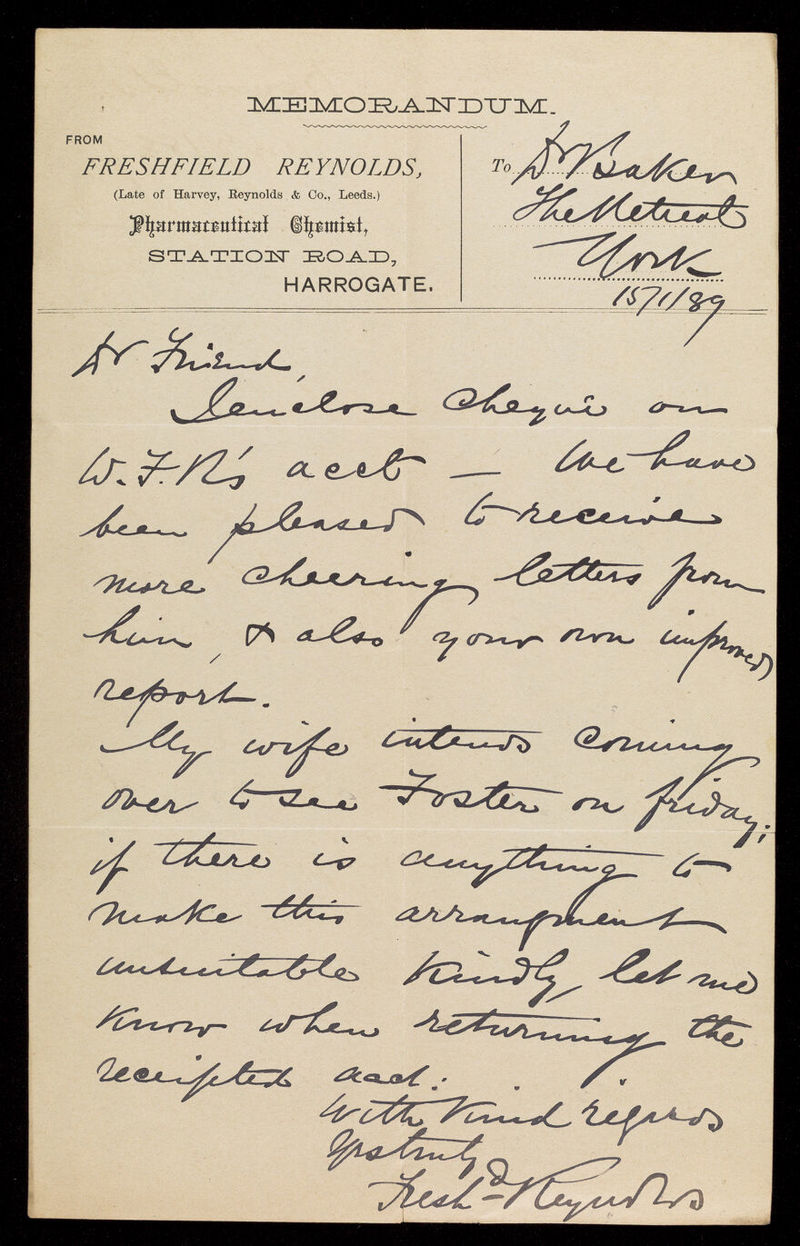 MEMORANDUM.
FROM
FRESHFIELD REYNOLDS,
(Late of Harvey, Reynolds & Co., Leeds.)
Pharmaceutical Chemist,
STATION ROAD,
HARROGATE.
To Dr Baker
The Retreat
York
15/1/89
Dr Friend,
I enclose cheque on
W.F.R's acct — We have
been pleased to receive
more cheering letters from
him, & also your own improved
report.
My wife intends coming
over to see Foster on friday;
if there is anything to
make this arrangment
unsuitable kindly let me
know when returning the
receipted acct.
With kind regards
Yrs truly
Freshd Reynolds